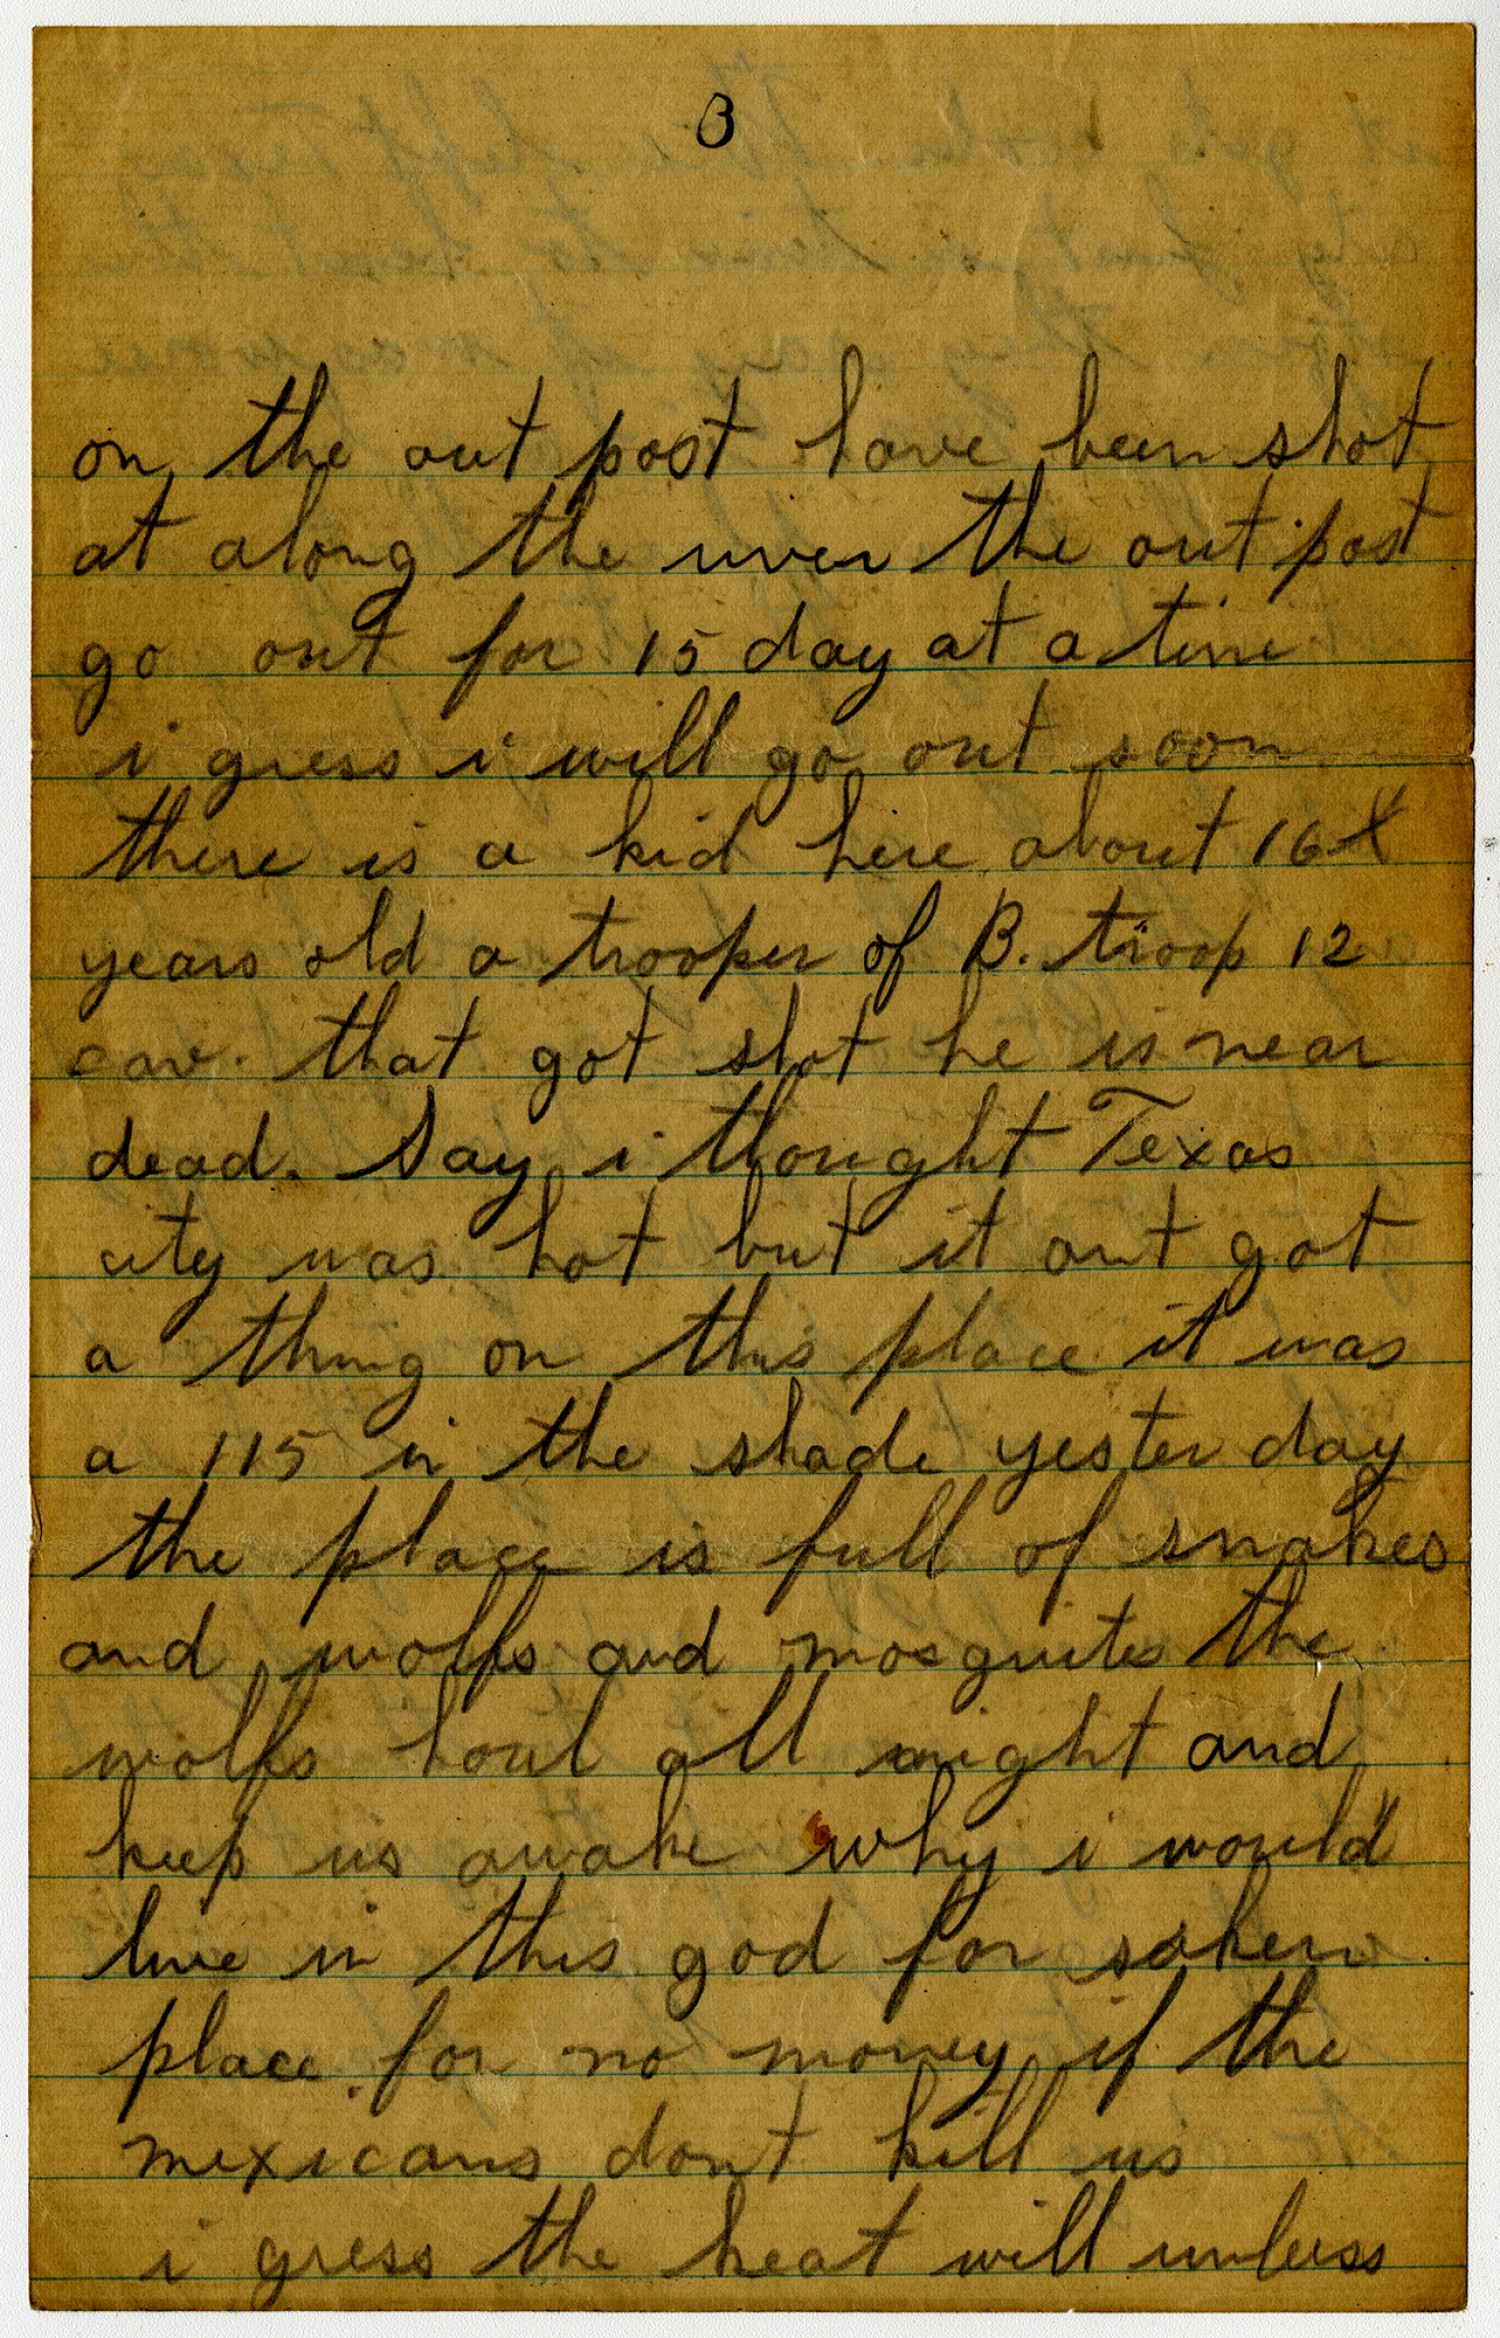 3
on the out post have been shot
at along the river the out post
go out for 15 day at a time
i guess i will go out soon
there is a kid here about 16
years old a trooper of B. troop 12
cav. that got shot he is near
dead. Say i thought Texas
city was hot but it ant got
a thing on this place it was
a 115 in the shade yester day
the place is full of snakes
and wolfs and mosquites the
wolfs houl all night and
keep us awake why i would
live in this god for saken
place for no money if the
mexicans dont kill us
i guess the heat will unless